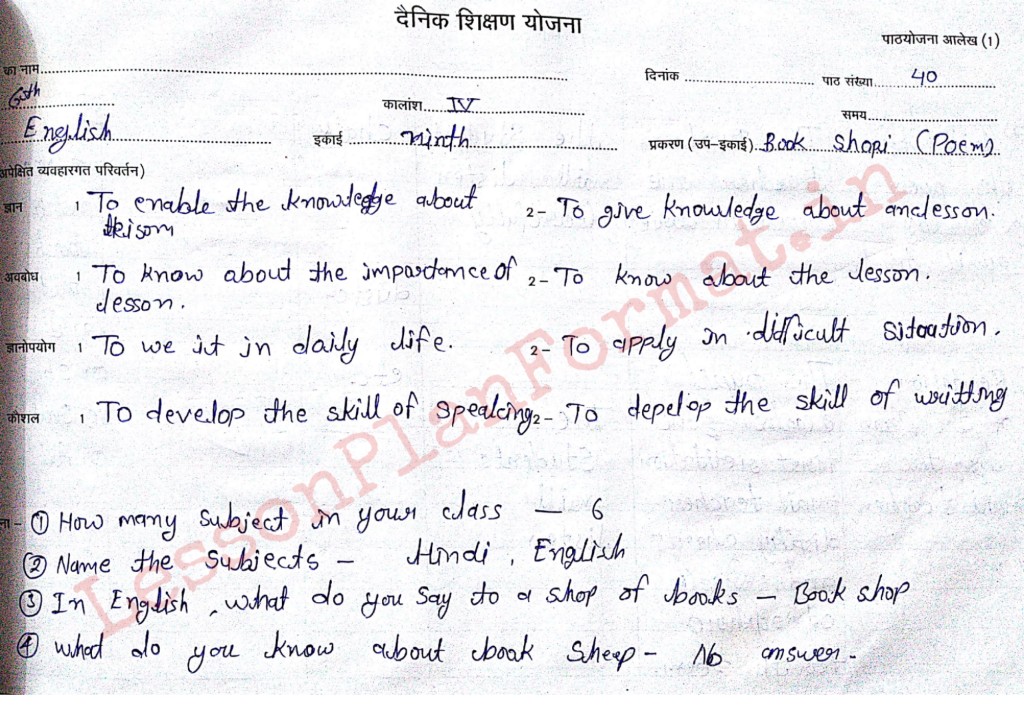 दैनिक शिक्षण योजना
पाठयोजना आलेख (1)
का नाम.......... दिनांक .......... पाठ संख्या.... 40
6th कालांश.... IV समय..........
English इकाई ..... ninth प्रकरण (उप-इकाई) Book Shop (Poem)
अपेक्षित व्यवहारगत परिवर्तन)
ज्ञान 1 To enable the knowledge about 2- To give knowledge about lesson.
अवबोध 1 To know about the impardance of 2- To know about the lesson.
lesson.
ज्ञानोपयोग 1 To we it in daily life. 2- To apply in difficult sitoation.
कौशल 1 To develop the skill of spealcing 2- To depelop the skill of writting
ना - ① How many Subject in your class - 6
② Name the Subjects - Hindi, English
③ In English, what do you say to a shop of books - Book shop
④ What do you know about book Shop - No answer.
LessonPlanFormat.in